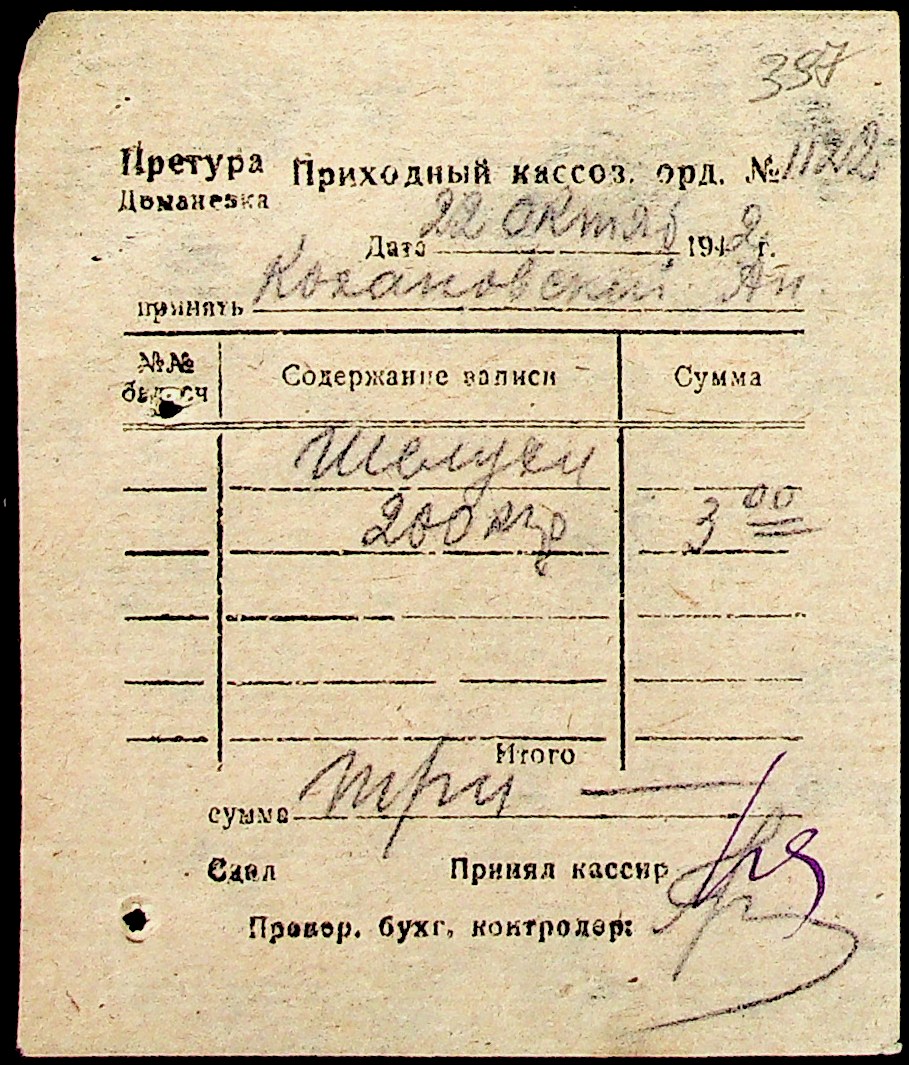 397
Претура Приходный кассов. орд. № 1122
Доманевка
Дата 22 октяб 1942 г.
принять Кохановской Ан.
№№ Содержание записи Сумма
Шелухи
200 кгр 3 00
Итого
сумма три —
Сдал Принял кассир
Провер. бухг. контролер: